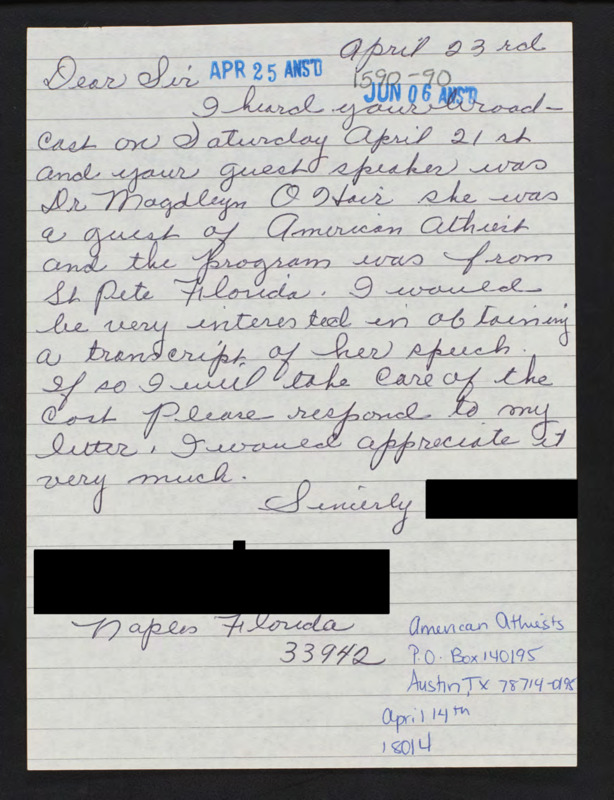 April 23rd
Dear Sir APR 25 ANS'D 1590-90
JUN 06 ANS'D
I heard your broad-
cast on Saturday April 21st
and your guest speaker was
Dr Magdleyn O Hair she was
a guest of American Athiest
and the program was from
St Pete Florida. I would
be very interested in obtaining
a transcript of her speech.
If so I will take care of the
cost Please respond to my
letter. I would appreciate it
very much.
Sincerly
Naples Florida
33942
American Athiests
P.O. Box 140195
Austin, TX 78714-0195
April 14th
18014